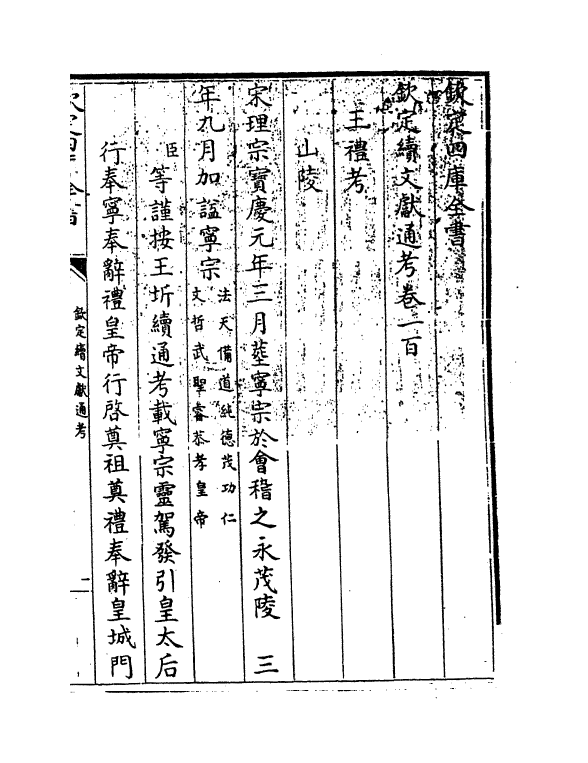 欽定四庫全書
欽定續文獻通考卷一百
王禮考
山陵
宋理宗寳慶元年三月塟寧宗於會稽之永茂陵 三
年九月加諡寧宗
法天備道純德茂功仁
文哲武聖睿恭孝皇帝
臣等謹按王圻續通考載寧宗靈駕發引皇太后
行奉寧奉辭禮皇帝行啓奠祖奠禮奉辭皇城門
欽定四庫全書
欽定續文獻通考